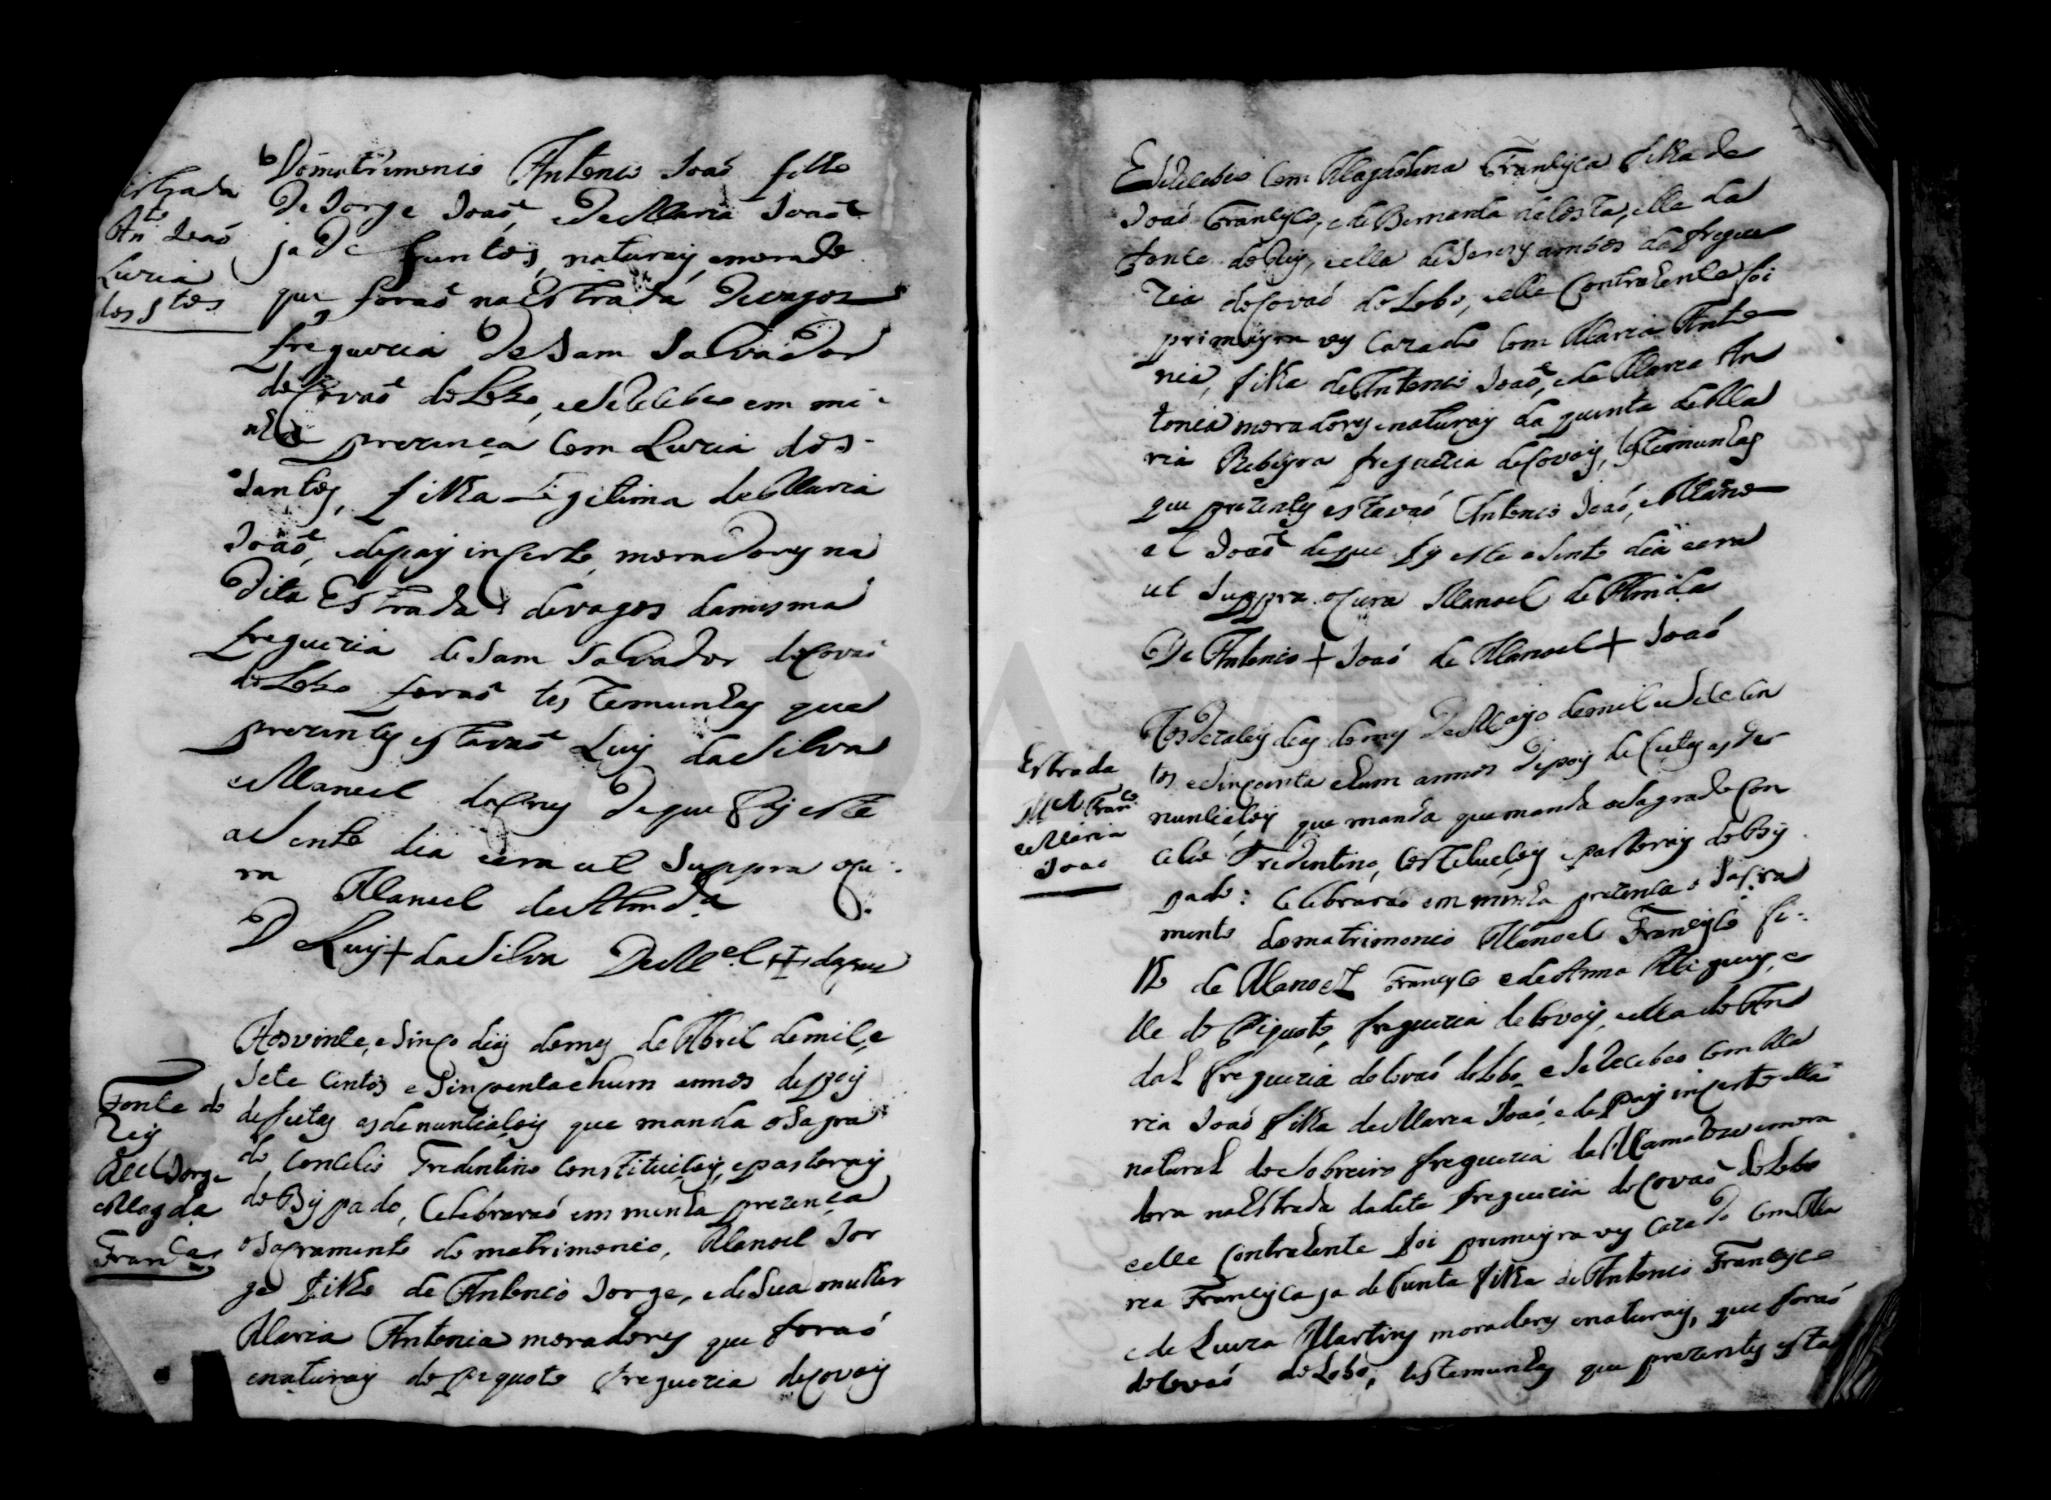 Estrada
Ant.º Joaõ
Luzia
dos S.tos
Do matrimonio Antonio Joaõ filho
de Jorge Joaõ, e de Maria Joaõ
ja defuntos, naturays, e morado
que foraõ na Estrada de vagos
freguezia de Sam Salvador
do Covaõ do Lobo, e se recebeo em mi
nha prezença com Luzia dos
Santos, filha Legitima de Maria
Joaõ, e de pay incerto, moradores na
dita Estrada de vagos da mesma
freguezia de Sam Salvador do Covaõ
do Lobo foraõ testemunhas que
prezentes estavaõ Luis da Silva
e Manoel da Crus de que fis este
asento dia e era ut Suppra o Cu
ra Manoel de Almd.ª
De Luis + da Silva De M.el + da Crus
Fonte do
Rey
M.el Jorge
e Magda
Fran.ca
Aos vinte, e Sinco dias do mes de Abril de mil, e
Sete centos e Sincoenta e hum annos depois
de feitas as denuntiaçois que manda o Sagra
do Concilio Tredentino Constituiçois, e pastorais
do Bispado, Celebraraõ em minha prezença
o Sacramento do matrimonio, Manoel Jor
ge filho de Antonio Jorge, e de Sua mulher
Maria Antonia moradores que foraõ
e naturais do Pequoto freguezia de Covois
E Se recebeo Com Magdalena Francisca filha de
Joaõ Francisco, e de Bernarda da Costa, elle da
Fonte do Rey, e ella de ambos da fregue
zia do Covaõ do Lobo, e elle Contrahente foi
primeyra ves Cazado Com Maria Anto
nia, filha de Antonio Joaõ, e de Maria An
tonia moradores e naturays da quinta de Ma
ria Rebeyra freguezia de Covois, testemunhas
que prezentes estavaõ Antonio Joaõ, e Mano
el Joaõ de que fis este asento dia e era
ut Suppra o Cura Manoel de Almida
De Antonio + Joaõ de Manoel + Joaõ
Estrada
M.el Fran.co
e Maria
Joaõ
Aos dezaseis dias do mes de Mayo de mil e Sete Cen
tos e Sincoenta e hum annos depois de feitas as de
nuntiaçois que manda que manda o Sagrado Con
cilio Tredentino, Costetuiçois, e pastorais do Bis
pado: Celebraraõ em minha prezenca o Sacra
mento do matrimonio Manoel Francisco fi
lho de Manoel Francisco e de Anna Migueis, e
lle do Pequoto, freguezia de Covois, e ella do An
dal freguezia do Covaõ do Lobo, e Se recebeo Com Ma
ria Joaõ filha de Maria Joaõ, e de Pay incerto
natural do Sobreiro freguezia da Mamaroza e mora
dora na Estrada da dita freguezia do Covaõ do Lobo
e elle Contrahente foi primeyra ves Cazado Com Ma
ria Francisca ja defunta filha de Antonio Francisco
e de Luiza Martins moradores e naturais, que foraõ
do Covaõ do Lobo, testemunhas que prezentes esta